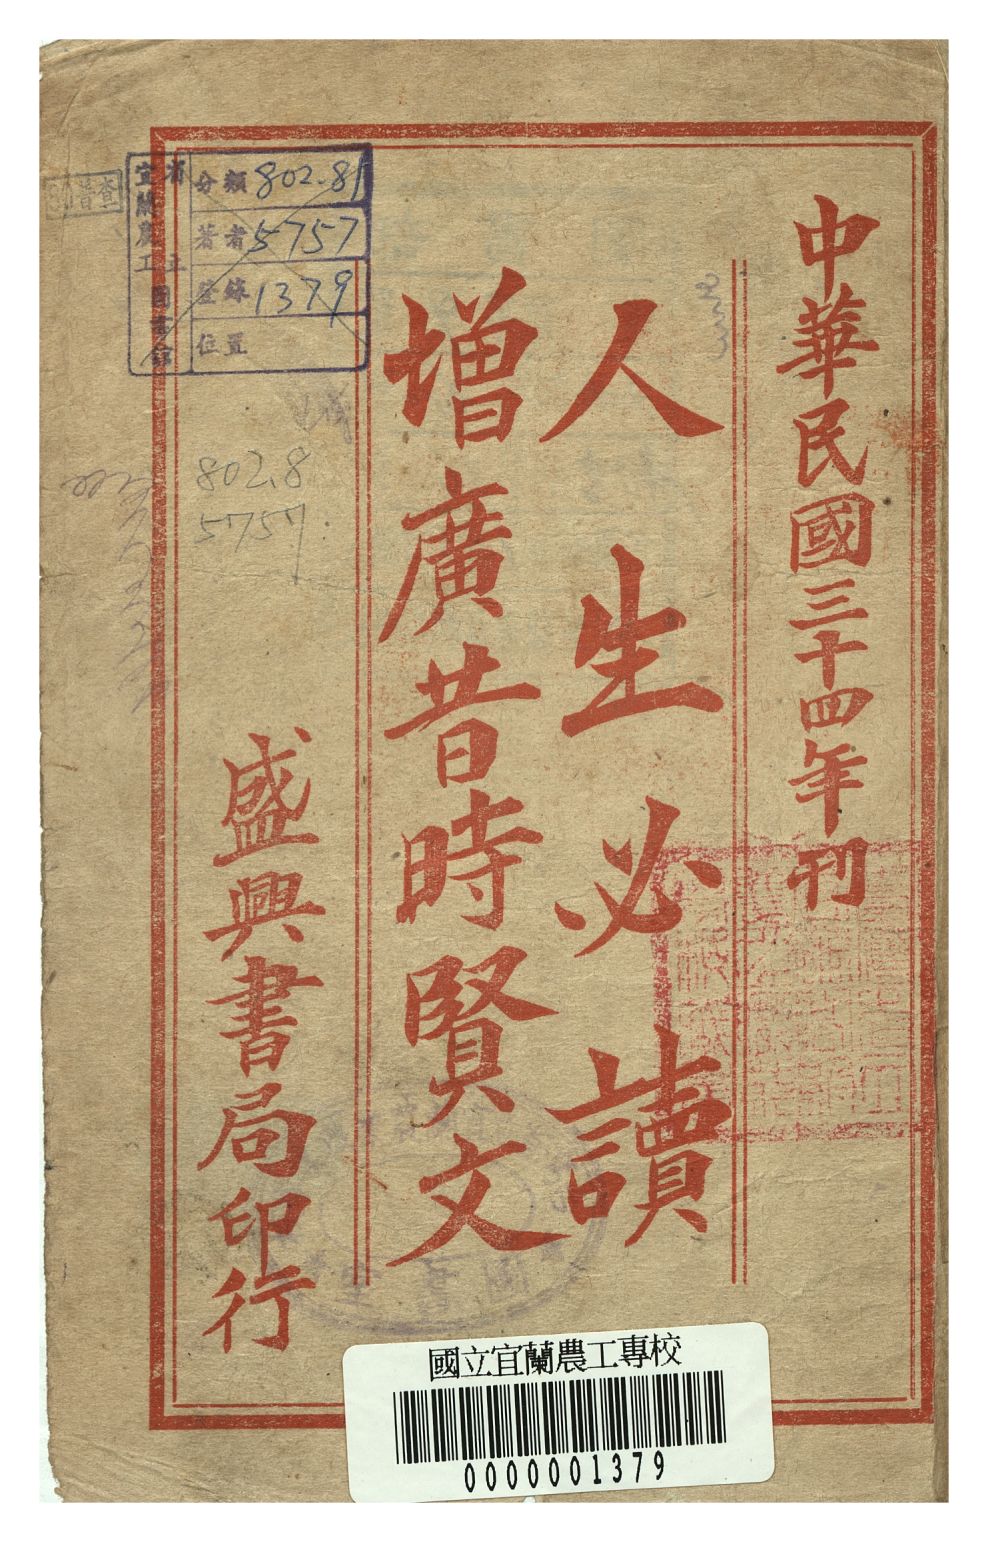 中華民國三十四年刊
人生必讀
增廣昔時賢文
盛興書局印行
省立宜蘭農工圖書館
分類 802.81
著者 5757
登錄 1379
位置
802.8
5757
國立宜蘭農工專校
0000001379